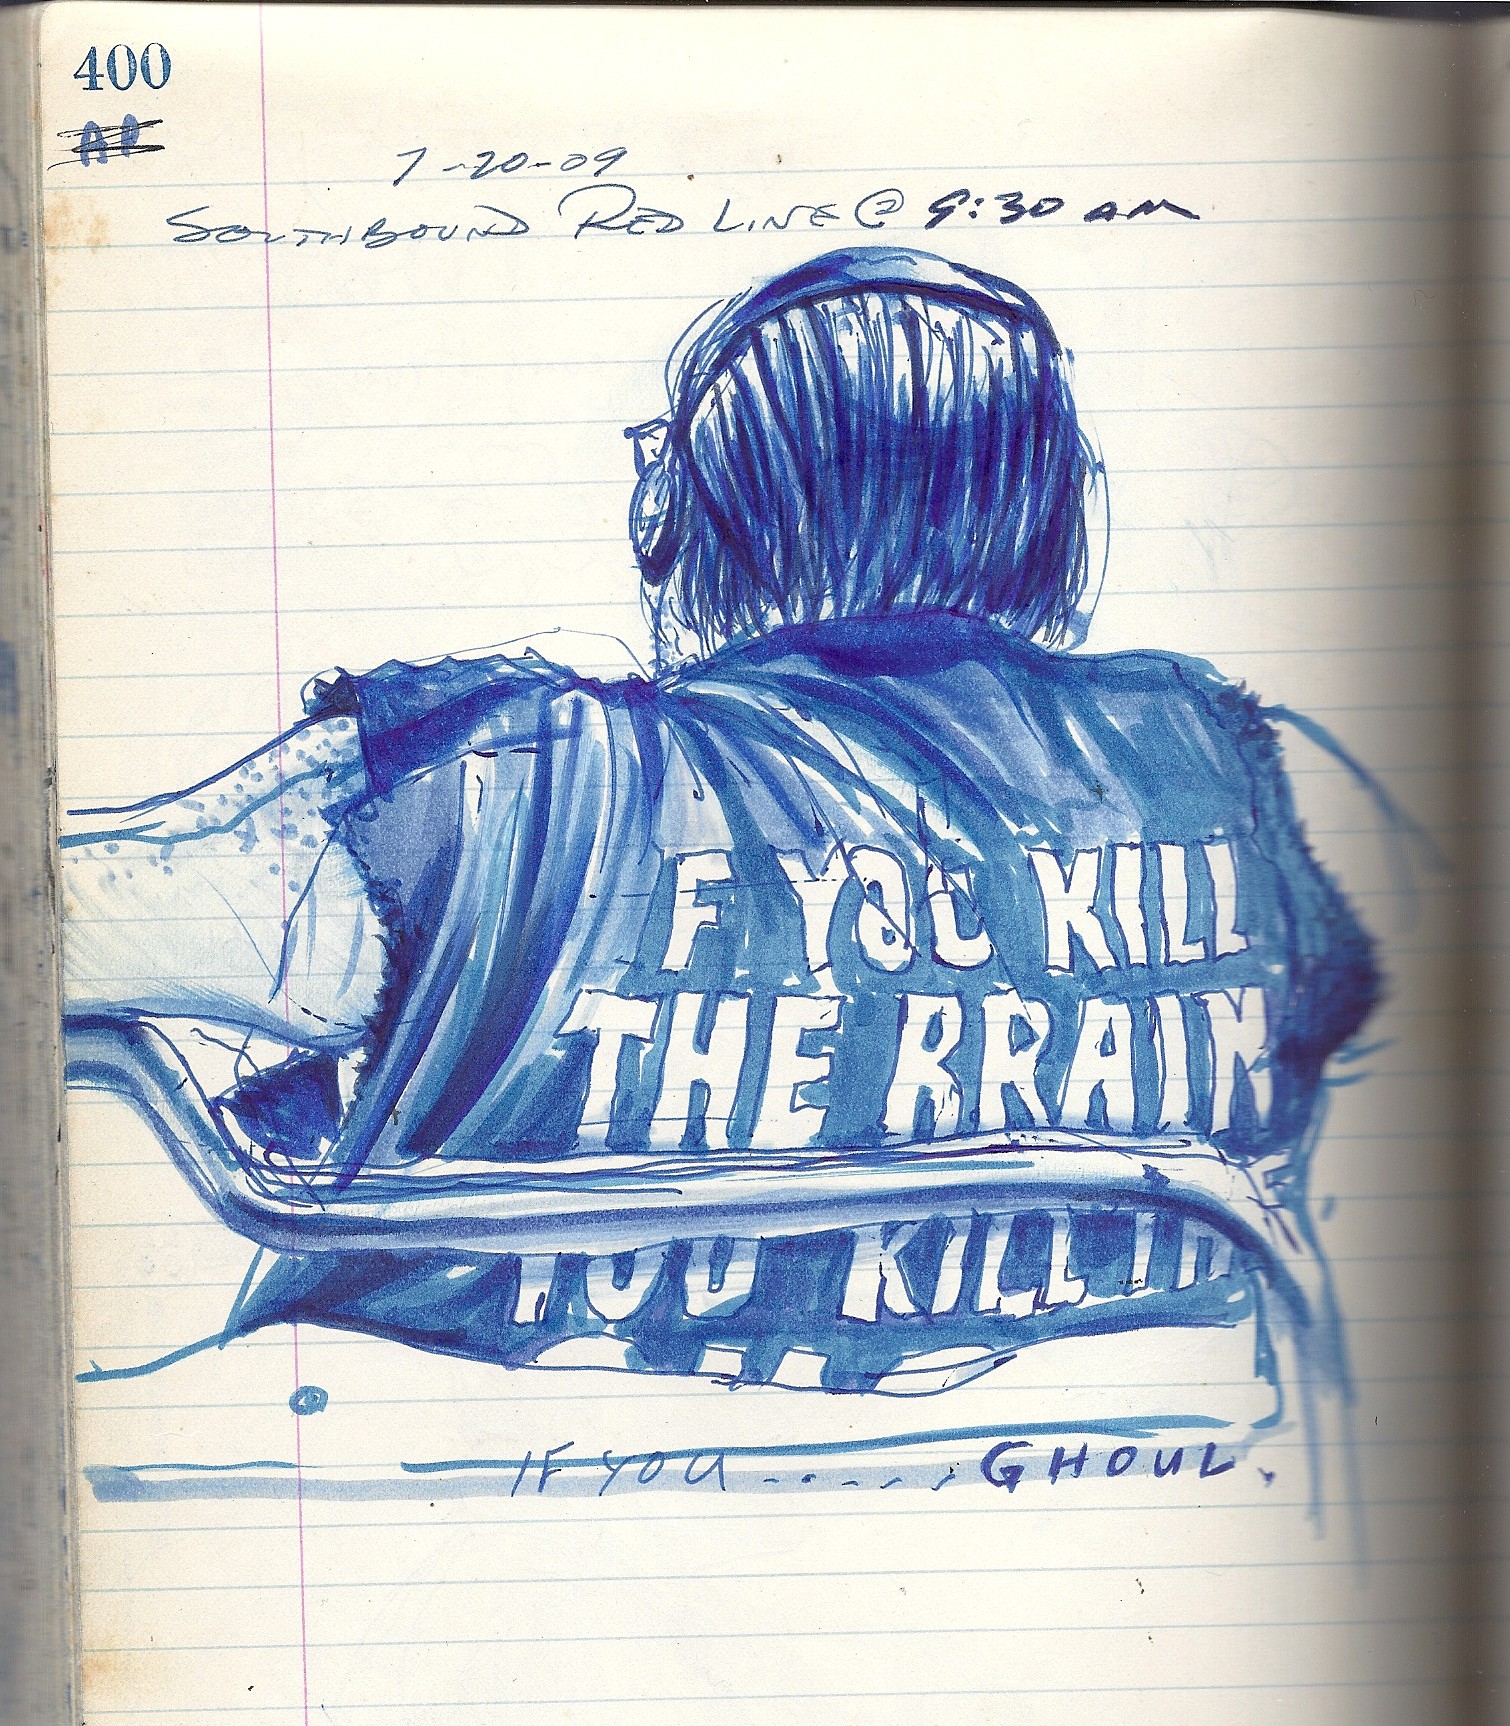 400
7-20-09
SOUTHBOUND RED LINE @ 9:30 am
F YOU KILL
THE BRAIN
E
YOU KILL TH
IF YOU ------ GHOUL.